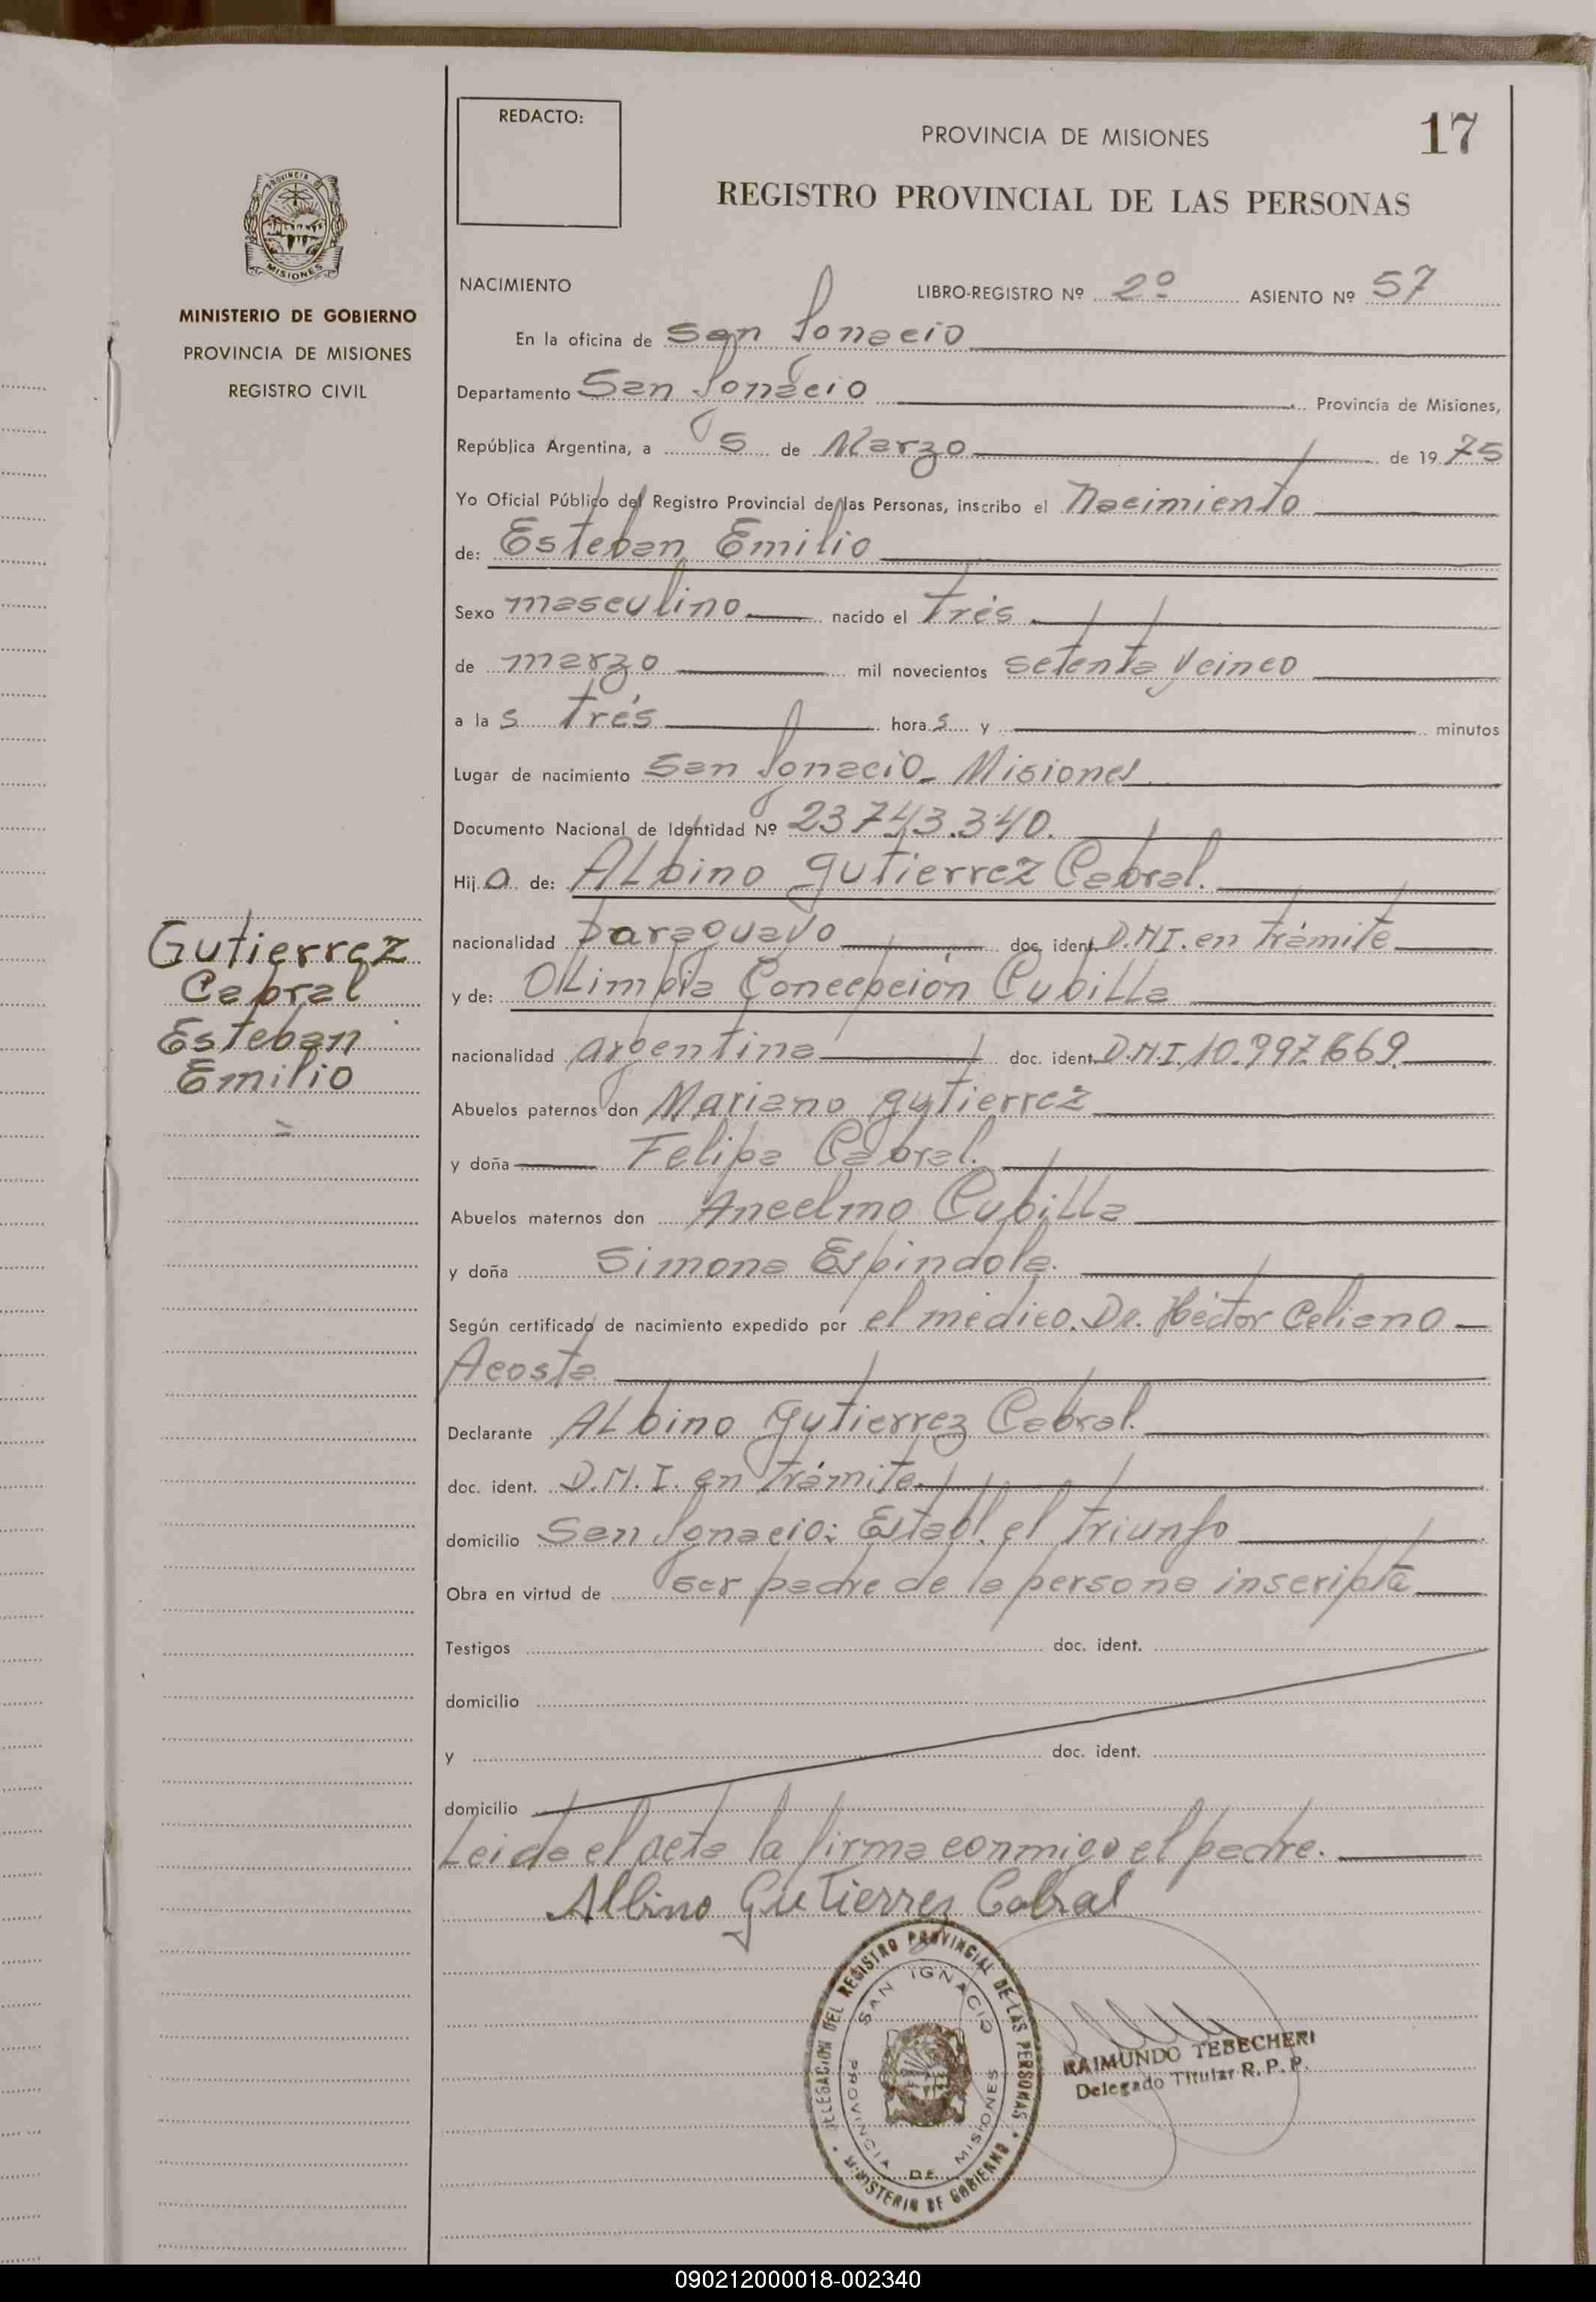 REDACTO:
PROVINCIA DE MISIONES
17
REGISTRO PROVINCIAL DE LAS PERSONAS
PROVINCIA DE
MISIONES
MINISTERIO DE GOBIERNO
PROVINCIA DE MISIONES
REGISTRO CIVIL
NACIMIENTO LIBRO-REGISTRO Nº 2º ASIENTO Nº 57
En la oficina de San Ignacio
Departamento San Ignacio Provincia de Misiones,
República Argentina, a 5 de Marzo de 1975
Yo Oficial Público del Registro Provincial de las Personas, inscribo el Nacimiento
de: Esteban Emilio
Sexo masculino nacido el Trés
de marzo mil novecientos setenta y cinco
a la s Trés hora s y minutos
Lugar de nacimiento San Ignacio - Misiones
Documento Nacional de Identidad Nº 23743.340.
Hij o de: Albino Gutierrez Cabral.
nacionalidad Paraguayo doc. ident. D.N.I. en Trámite
y de: Olimpia Concepción Cubilla
nacionalidad argentina doc. ident. D.N.I. 10.997.669.
Abuelos paternos don Mariano Gutierrez
y doña Felipa Cabral.
Abuelos maternos don Ancelmo Cubilla
y doña Simona Espindola.
Según certificado de nacimiento expedido por el médico. Dr. Héctor Celiano
Acosta
Declarante Albino Gutierrez Cabral.
doc. ident. D.N.I. en Trámite
domicilio San Ignacio: Establ. el Triunfo
Obra en virtud de ser padre de la persona inscripta
Testigos doc. ident.
domicilio
y doc. ident.
domicilio
Leida el acta la firma conmigo el padre.
Albino Gutierrez Cabral
Gutierrez
Cabral
Esteban
Emilio
DELEGACION DEL REGISTRO PROVINCIAL DE LAS PERSONAS
MINISTERIO DE GOBIERNO
SAN IGNACIO
PROVINCIA DE MISIONES
RAIMUNDO TEBECHERI
Delegado Titular R. P. P.
090212000018-002340